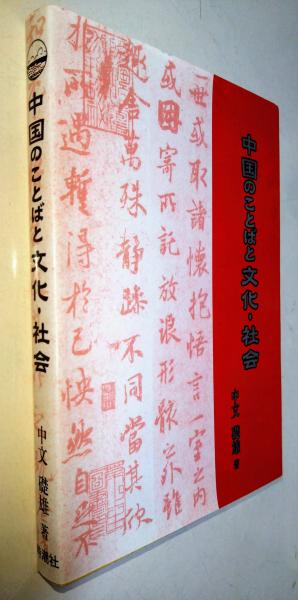 中国のことばと文化・社会
中文 礎雄 著
一世或取諸懷抱悟言一室之内
或因寄所託放浪形骸之外雖
趣舍萬殊静躁不同當其欣
於所遇暫得於己快然自足不
中国のことばと文化・社会
中文 礎雄 著
時潮社